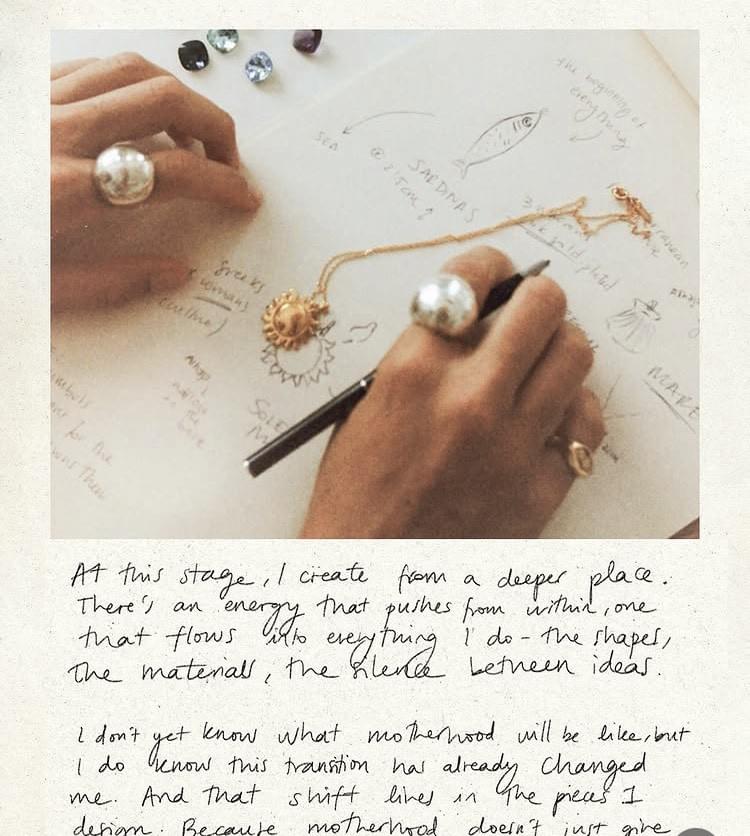 the beginning of
everything
SEA
SARDINAS
gold plated
Greeks
(womans
culture)
MARE
SOLE
for the
At this stage, I create from a deeper place.
There's an energy that pushes from within, one
that flows into everything I do - the shapes,
the materials, the silence between ideas.
I don't yet know what motherhood will be like, but
I do know this transition has already changed
me. And that shift lives in the pieces I
design. Because motherhood doesn't just give